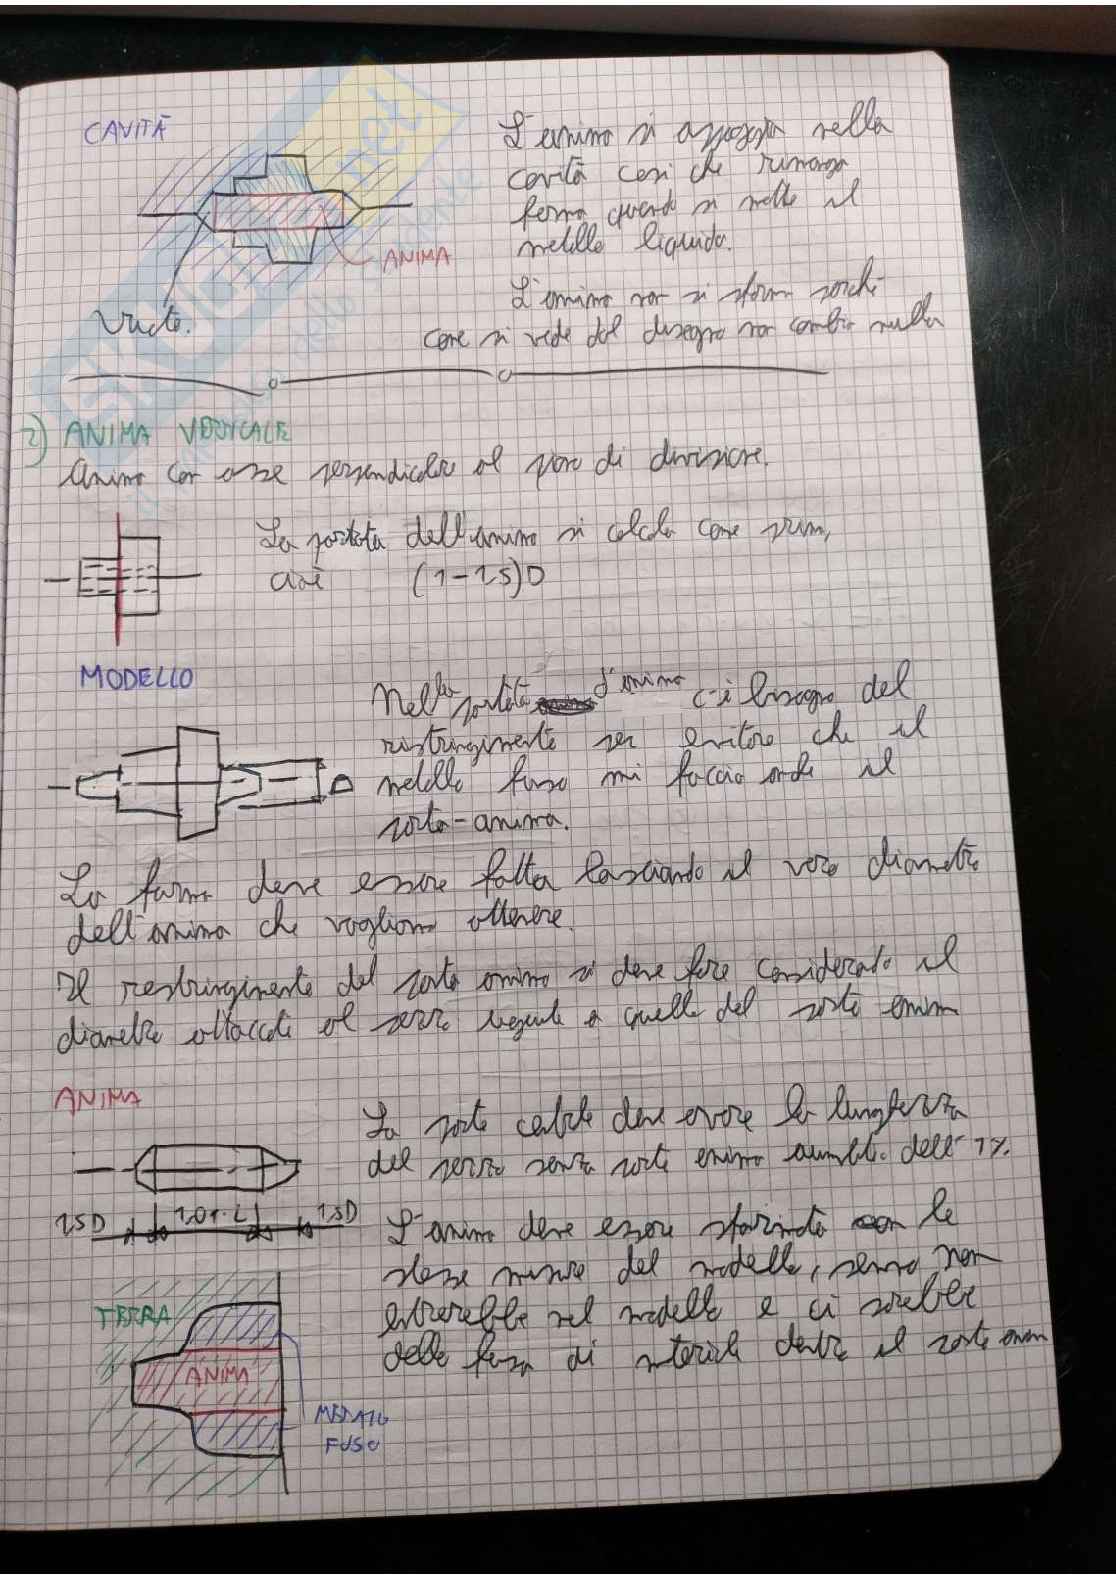 CAVITÀ
L'anima si appoggia nella
cavità così che rimanga
ferma quando si mette il
metallo liquido.
ANIMA
L'anima non si sforma perché
Vuoto.
come si vede dal disegno non cambia nulla
2) ANIMA VERTICALE
Anima con asse perpendicolare al piano di divisione.
La portata dell'anima si calcola come prima,
cioè (1-1,5)D
MODELLO
Nella portata d'anima c'è bisogno del
ristringimento per evitare che il
metallo fuso mi faccia anche il
porta-anima.
La forma deve essere fatta lasciando il vero diametro
dell'anima che vogliamo ottenere.
Il restringimento del porta anima si deve fare considerato il
diametro attaccato al pezzo uguale a quello del porta anima
ANIMA
La parte centrale deve avere la lunghezza
del pezzo senza porta anima aumentata dell'1%.
1,5D 1,01·L 1,5D
L'anima deve essere con le
stesse misure del modello, senno non
entrerebbe nel modello e ci sarebbe
TERRA
della di materiale dentro il porta anima
ANIMA
METALLO
FUSO